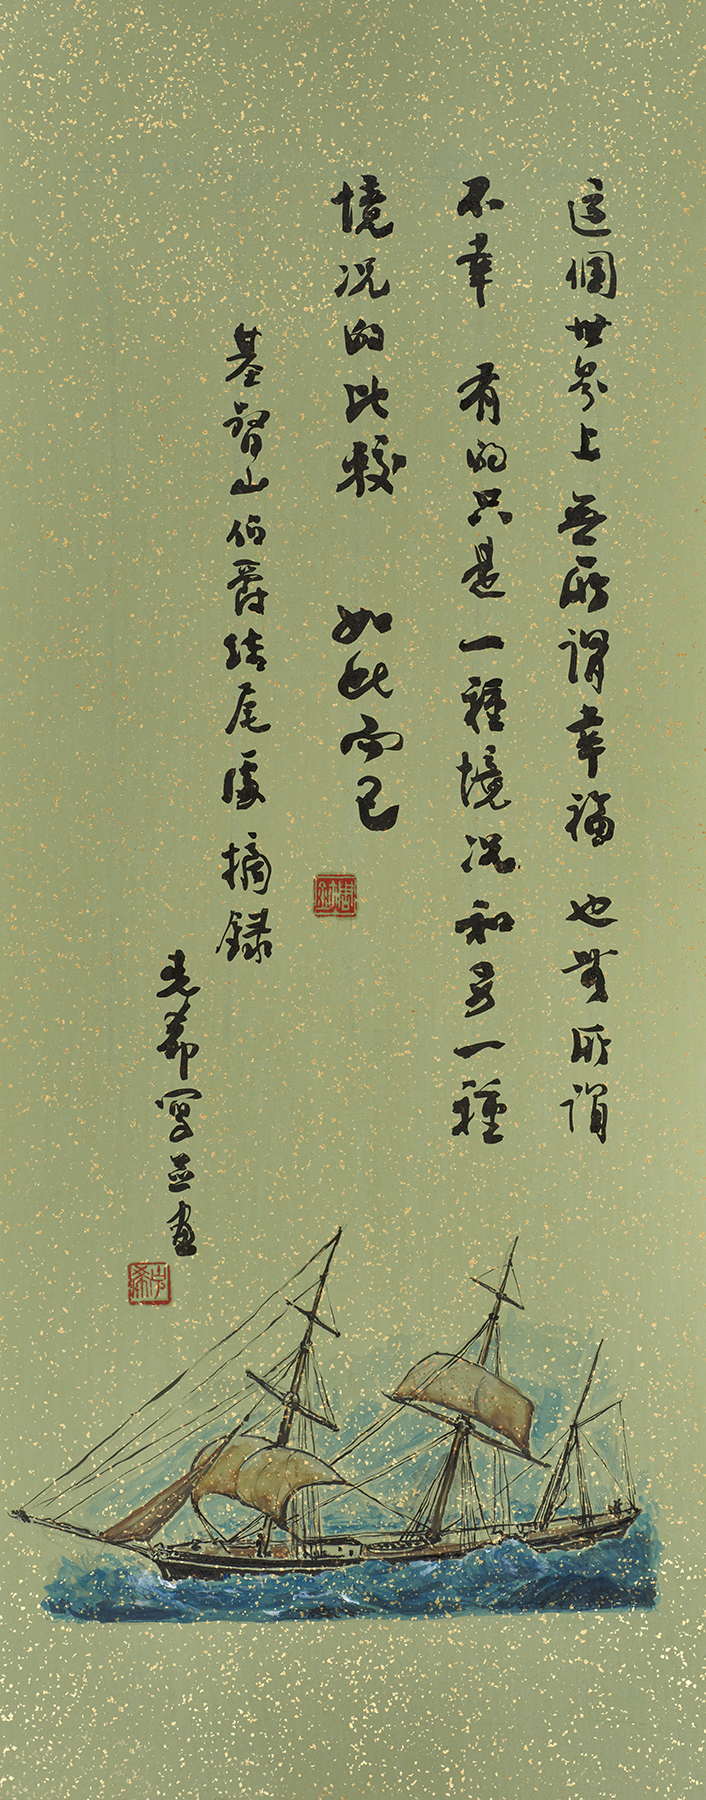 這個世界上 無所謂幸福 也無所謂
不幸 有的只是一種境况和另一種
境况的比較 如此而已
基督山伯爵結尾處 摘録
克希寫並畫